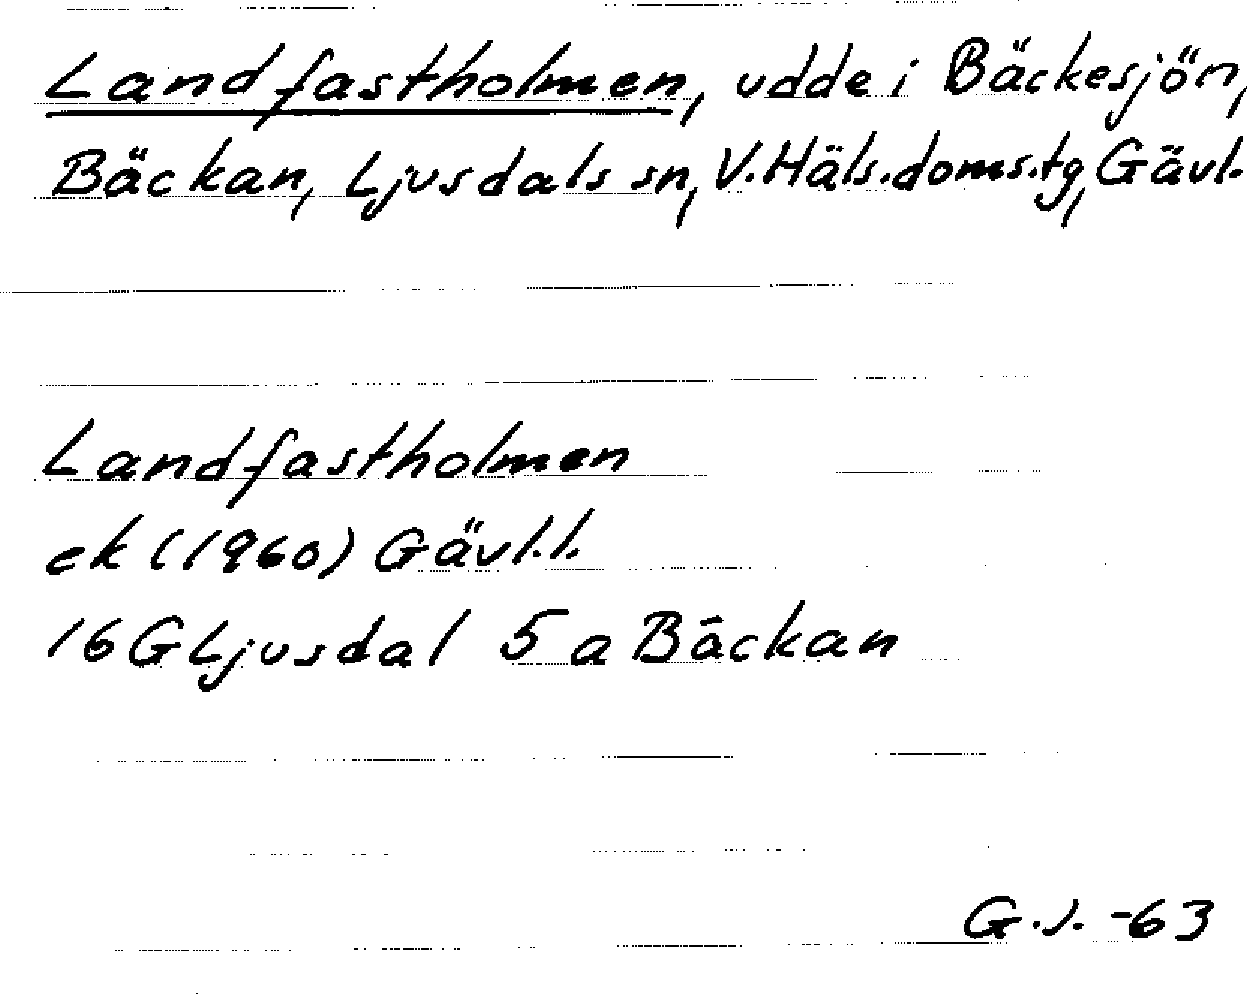 Landfastholmen, udde i Bäckesjön,
Bäckan, Ljusdals sn, V.Häls.doms.tg, Gävl.
Landfastholmen
ek (1960) Gävl.l.
16G Ljusdal 5a Bäckan
G.J. -63